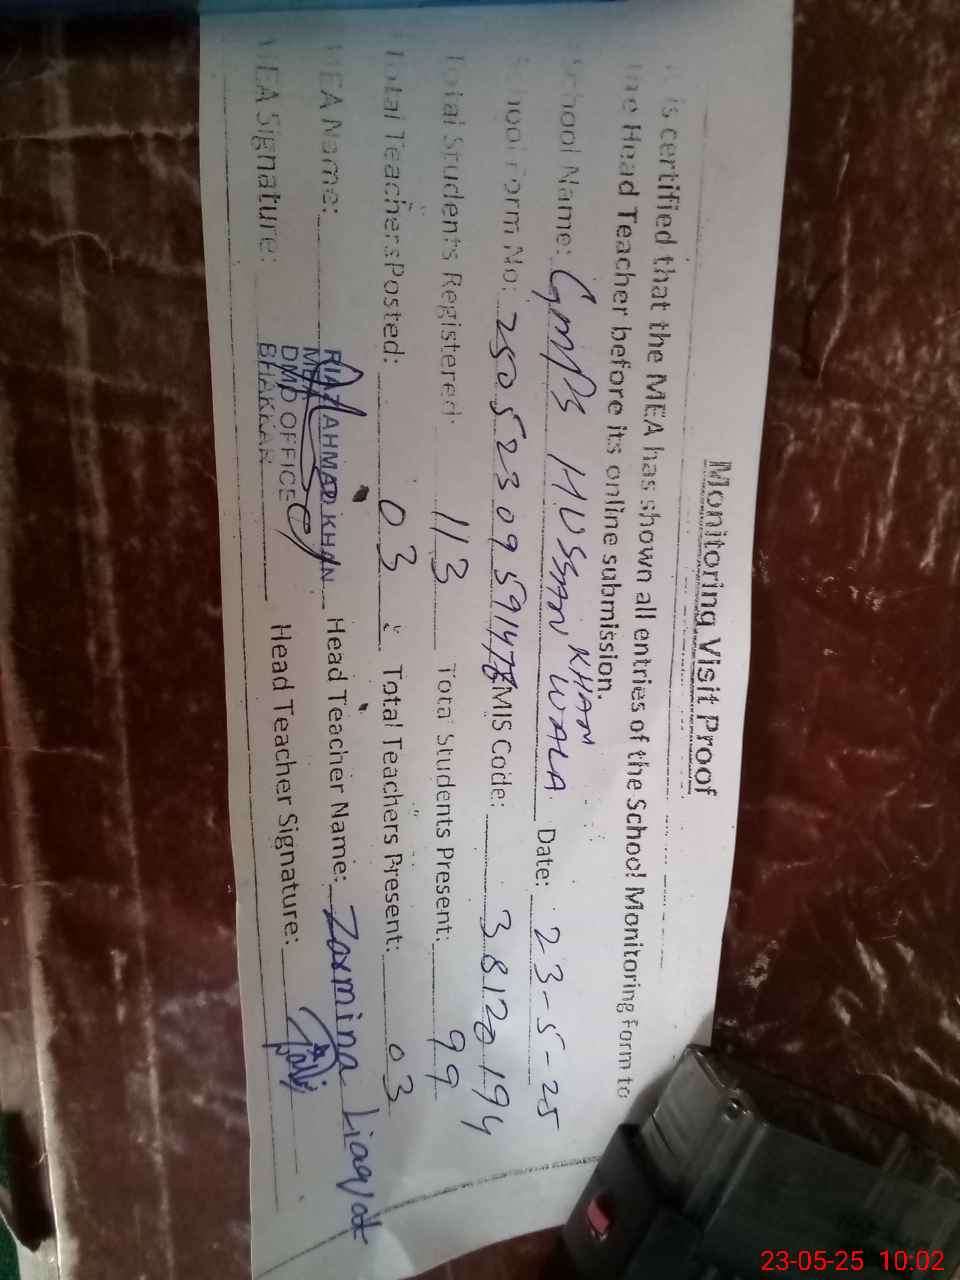 Monitoring Visit Proof
is certified that the MEA has shown all entries of the School Monitoring form to
the Head Teacher before its online submission.
School Name: GMPS HUSSAN KHAN WALA Date: 23-5-25
School Form No: MIS Code: 38120194
Total Students Registered: 113 Total Students Present: 99
Total Teachers Posted: 03 Total Teachers Present: 03
MEA Name: RIAZ AHMAD KHAN Head Teacher Name: Zarmina Liaqat
MEA
DMO OFFICE
BHAKKAR
MEA Signature: Head Teacher Signature:
23-05-25 10:02